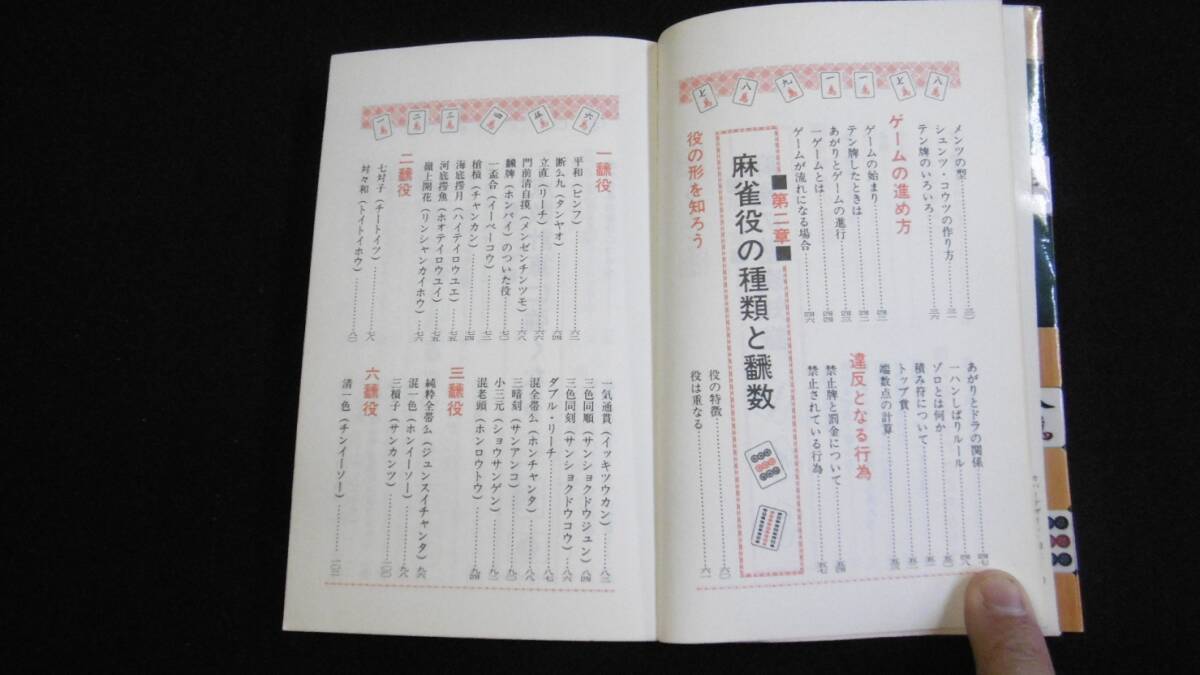 メンツの型……三〇
シュンツ・コウツの作り方……三一
テン牌のいろいろ……三六
ゲームの進め方
ゲームの始まり……四二
テン牌したときは……四三
あがりとゲームの進行……四四
一ゲームとは……四四
ゲームが流れになる場合……四六
あがりとドラの関係……四七
一ハンしばりルール……四八
ゾロとは何か……五〇
積み符について……五一
トップ賞……五二
端数点の計算……五三
違反となる行為
禁止牌と罰金について……五四
禁止されている行為……五七
■第二章■
麻雀役の種類と飜数
役の形を知ろう
役の特徴……六〇
役は重なる……六一
一飜役
平和（ピンフ）……六二
断么九（タンヤオ）……六四
立直（リーチ）……六六
門前清自摸（メンゼンチンツモ）……六八
飜牌（ホンパイ）のついた役……七〇
一盃合（イーペーコウ）……七二
槍槓（チャンカン）……七四
海底撈月（ハイテイロウユエ）……七五
河底撈魚（ホオテイロウユイ）……七五
嶺上開花（リンシャンカイホウ）……七六
二飜役
七対子（チートイツ）……七八
対々和（トイトイホウ）……八〇
一気通貫（イッキツウカン）……八二
三色同順（サンショクドウジュン）……八四
三色同刻（サンショクドウコウ）……八六
ダブル・リーチ……八七
混全帯么（ホンチャンタ）……八八
三暗刻（サンアンコ）……九〇
小三元（ショウサンゲン）……九二
混老頭（ホンロウトウ）……九四
三飜役
純粋全帯么（ジュンスイチャンタ）九六
混一色（ホンイーソー）……九八
三槓子（サンカンツ）……一〇〇
六飜役
清一色（チンイーソー）……一〇二